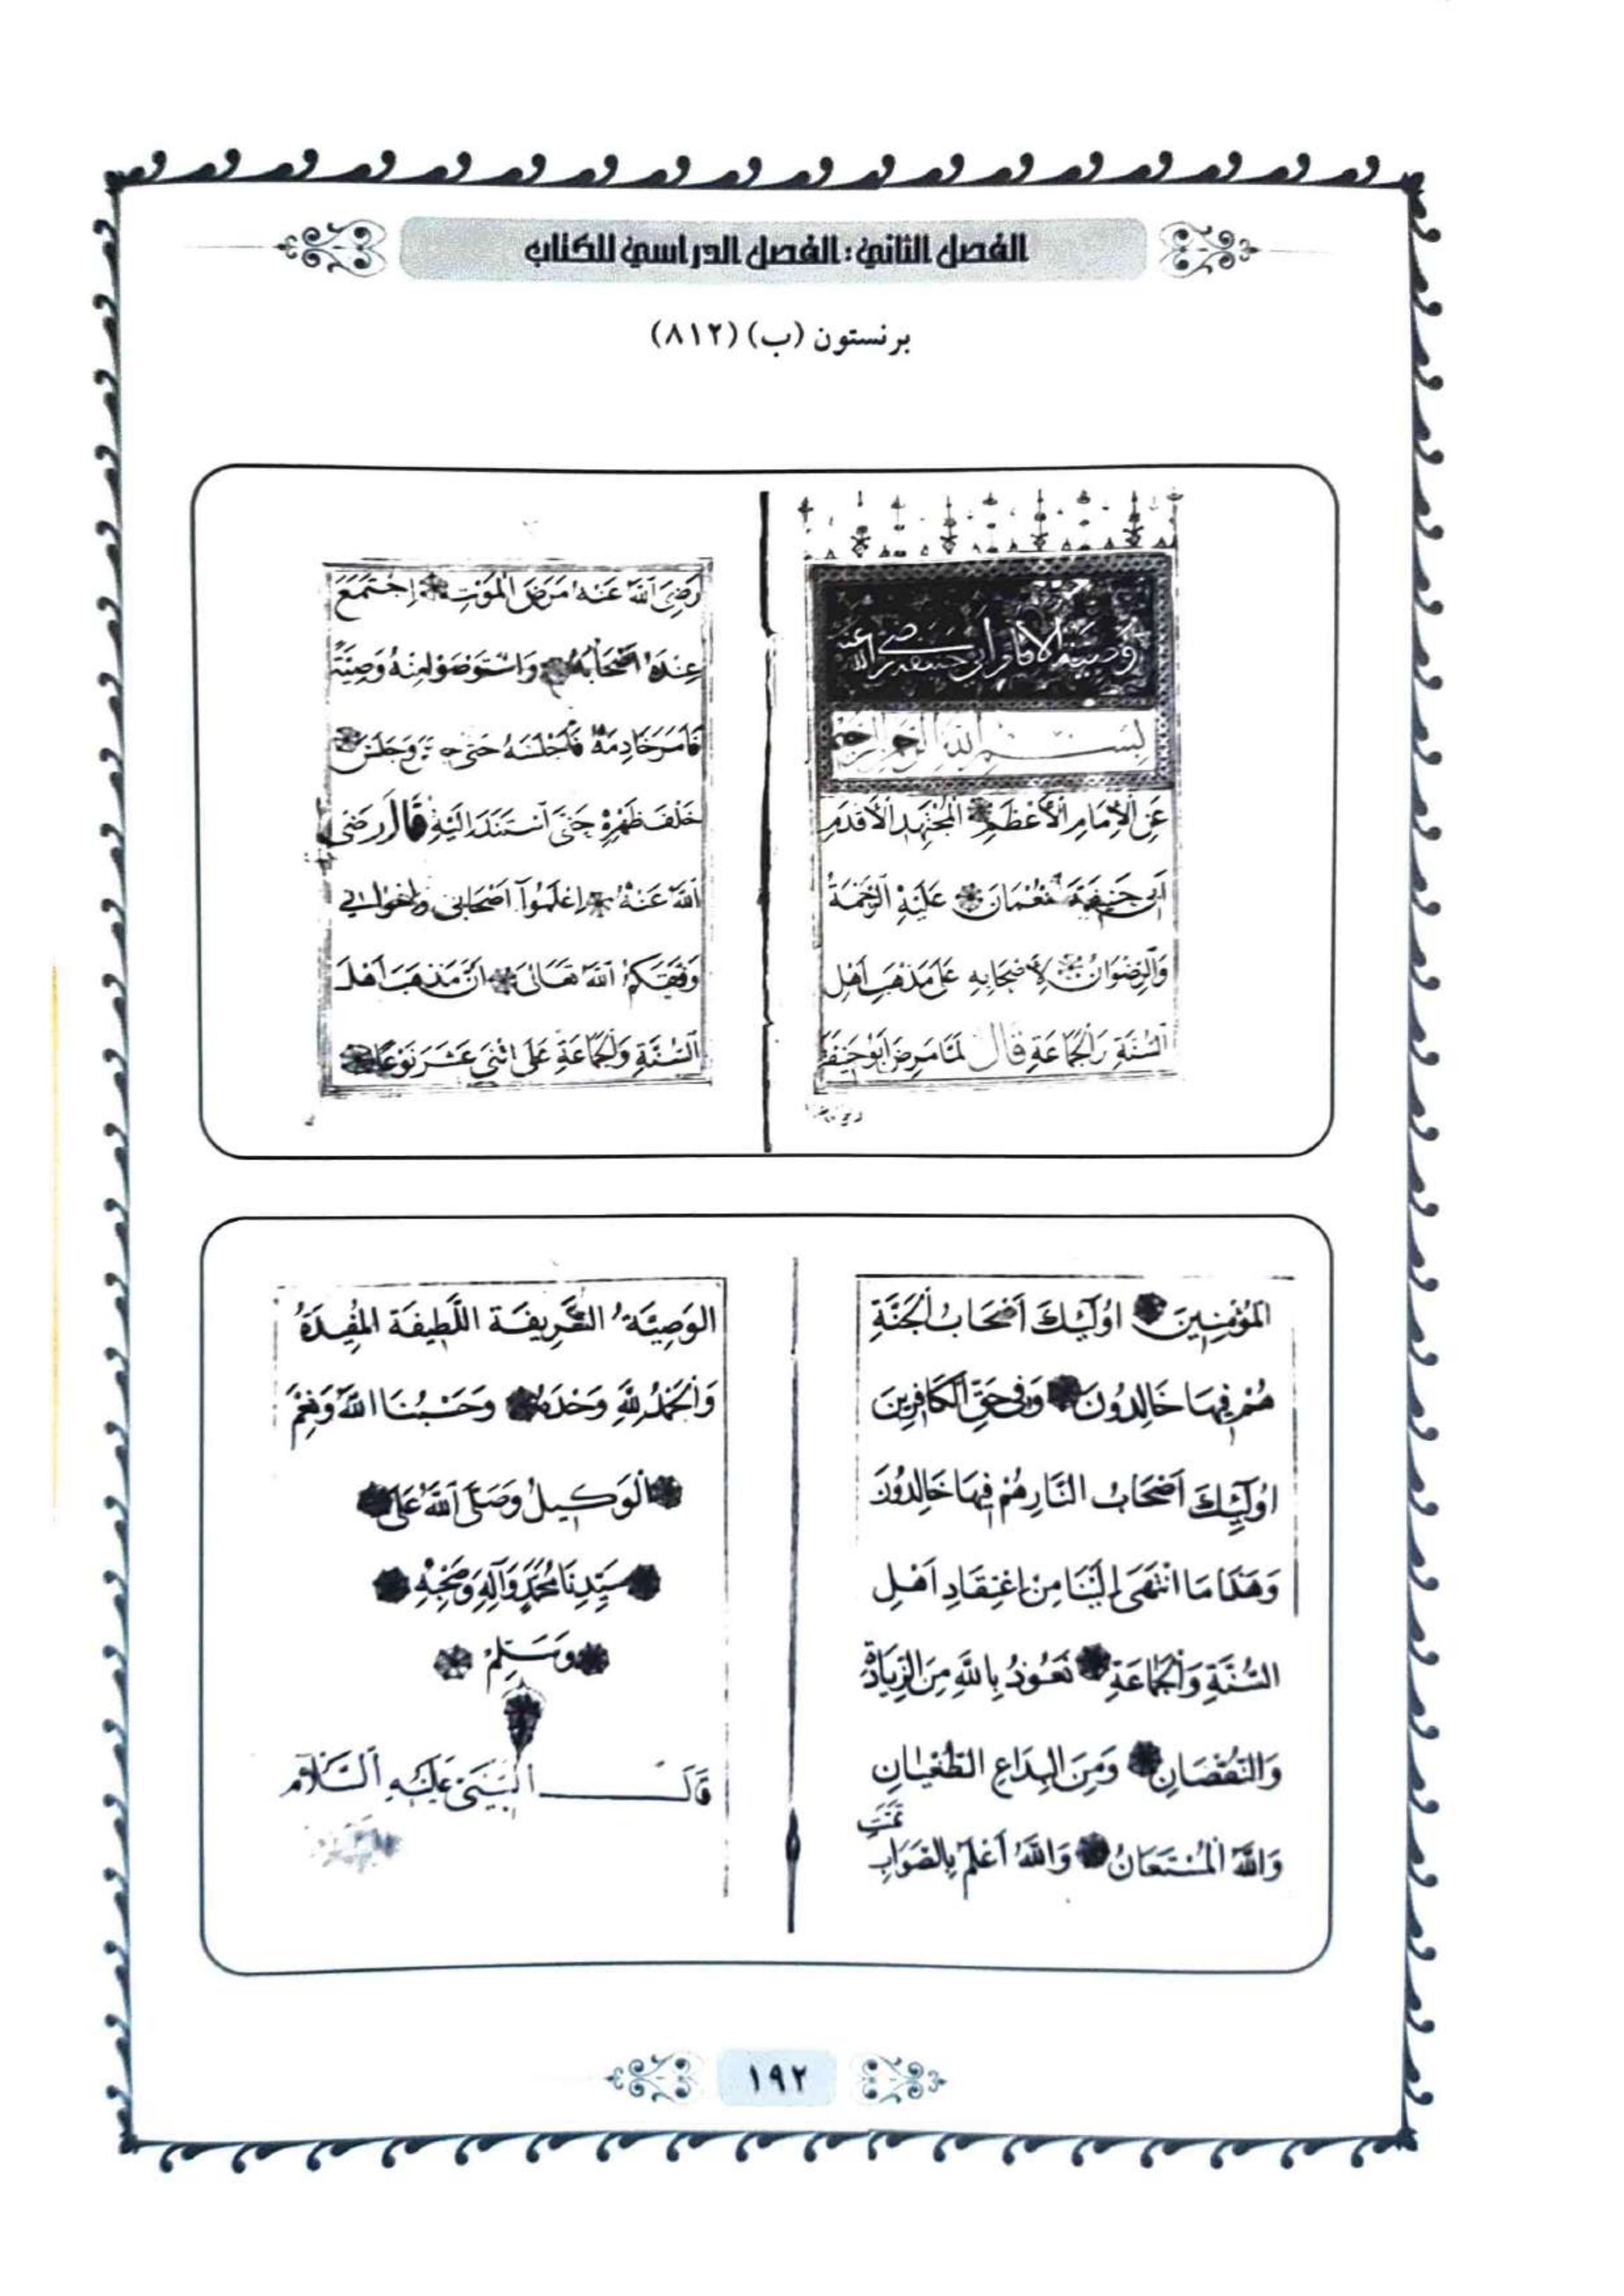 الفصل الثاني: الفصل الدراسي للكتاب
برنستون (ب) (٨١٢)
وصية الامام ابي حنيفة رضي الله عنه
بسم الله الرحمن الرحيم
عَنِ الْاِمَامِ الْاَعْظَمِ الْمُجْتَهِدِ الْاَقْدَمِ
اَبِي حَنِيفَةَ نُعْمَانَ عَلَيْهِ الرَّحْمَةُ
وَالرِّضْوَانُ لِاَصْحَابِهِ عَلَى مَذْهَبِ اَهْلِ
السُّنَّةِ وَالْجَمَاعَةِ قَالَ لَمَّا مَرِضَ اَبُو حَنِيفَةَ
رَضِيَ اللهُ عَنْهُ مَرَضَ الْمَوْتِ اِجْتَمَعَ
عِنْدَهُ اَصْحَابُهُ وَاسْتَوْصَوْا مِنْهُ وَصِيَّةً
فَاَمَرَ خَادِمَهُ فَاَجْلَسَهُ حَتَّى وَجَلَسَ
خَلْفَ ظَهْرِهِ حَتَّى اسْتَنَدَ اِلَيْهِ قَالَ رَضِيَ
اللهُ عَنْهُ اِعْلَمُوا اَصْحَابِي وَاِخْوَانِي
وَفَّقَكُمُ اللهُ تَعَالَى اَنَّ مَذْهَبَ اَهْلِ
السُّنَّةِ وَالْجَمَاعَةِ عَلَى اثْنَيْ عَشَرَ نَوْعًا
الْمُؤْمِنِينَ اُولَئِكَ اَصْحَابُ الْجَنَّةِ
هُمْ فِيهَا خَالِدُونَ وَفِي حَقِّ الْكَافِرِينَ
اُولَئِكَ اَصْحَابُ النَّارِ هُمْ فِيهَا خَالِدُونَ
وَهَذَا مَا انْتَهَى اِلَيْنَا مِنْ اِعْتِقَادِ اَهْلِ
السُّنَّةِ وَالْجَمَاعَةِ نَعُوذُ بِاللهِ مِنَ الزِّيَادَةِ
وَالنُّقْصَانِ وَمِنَ الْبِدَاعِ الطُّغْيَانِ
وَاللهُ الْمُسْتَعَانُ وَاللهُ أَعْلَمُ بِالصَّوَابِ
تَمَّتِ
الوَصِيَّةُ الشَّرِيفَةُ اللَّطِيفَةُ الْمُفِيدَةُ
وَالْحَمْدُ لِلَّهِ وَحْدَهُ وَحَسْبُنَا اللهُ وَنِعْمَ
الْوَكِيلُ وَصَلَّى اللهُ عَلَى
سَيِّدِنَا مُحَمَّدٍ وَآلِهِ وَصَحْبِهِ
وَسَلَّمَ
قَالَ النَّبِيُّ عَلَيْهِ السَّلَامُ
١٩٢